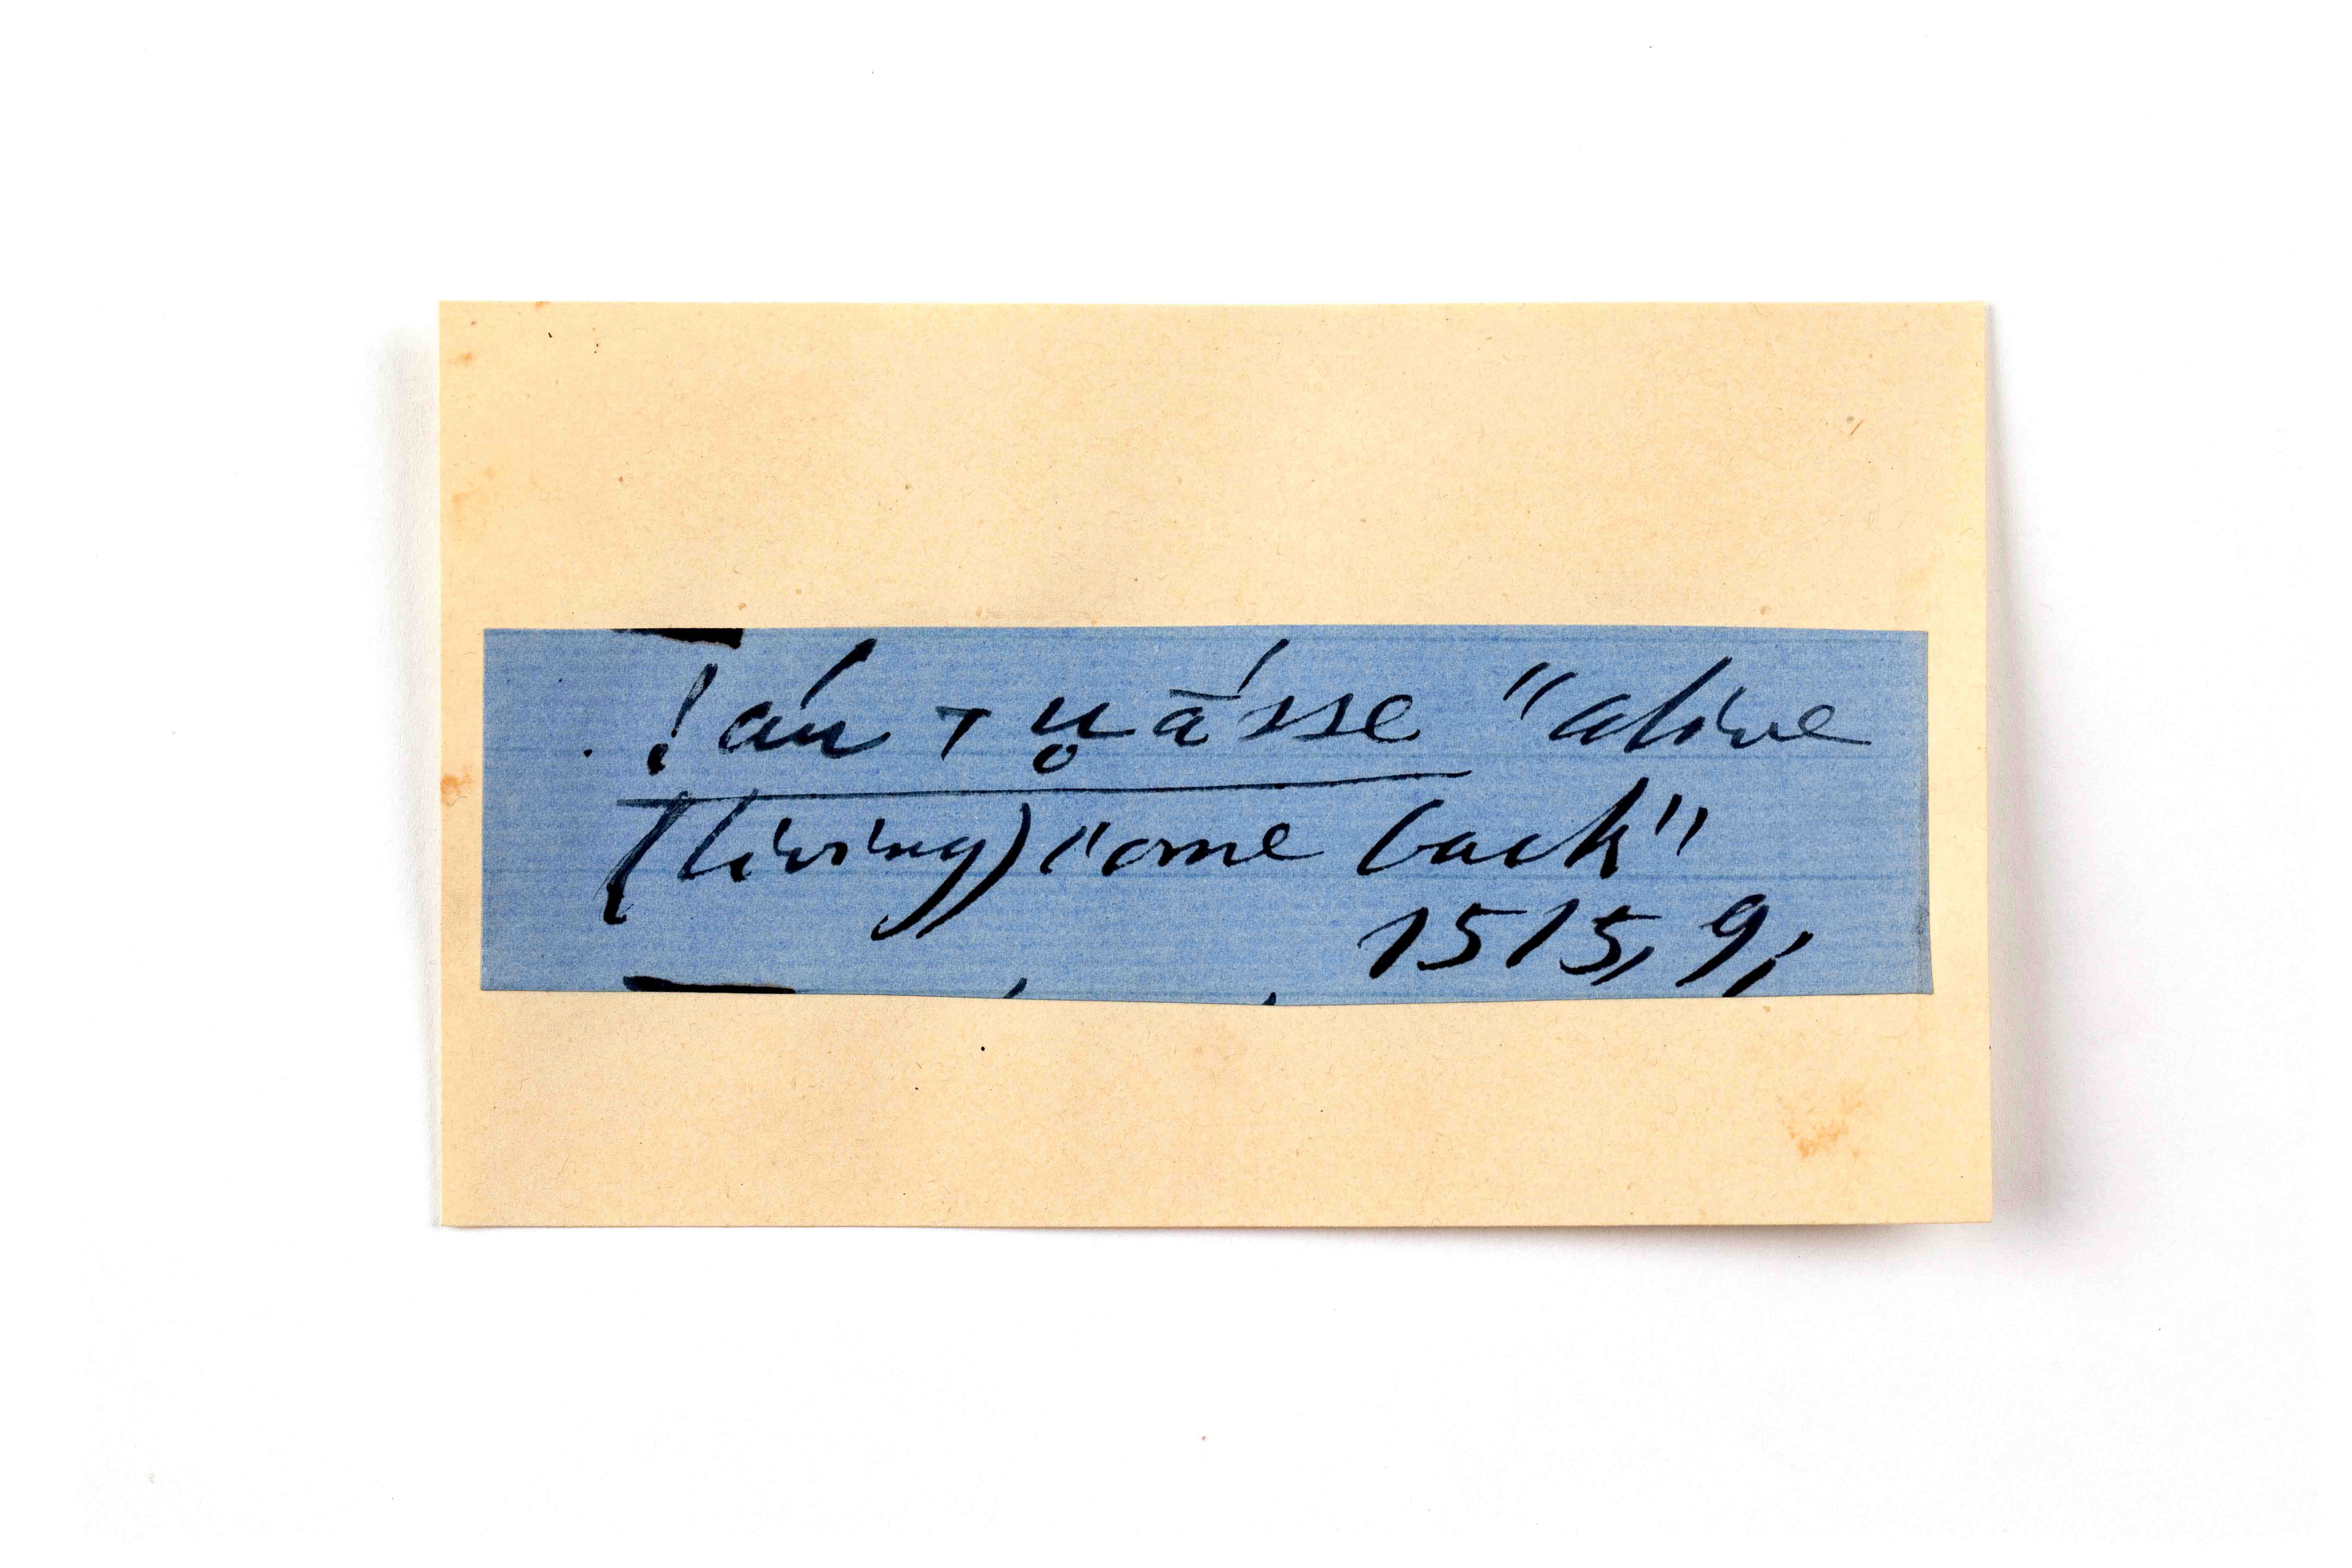 !áń + u̥ā́sse "alive
(living) come back"
1515, 9,